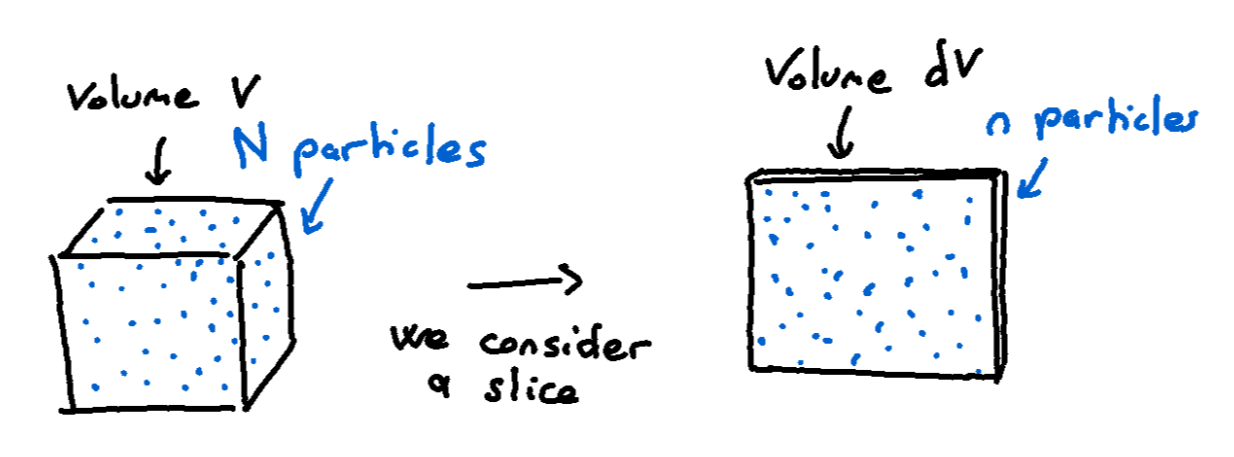 Volume V
N particles
we consider
a slice
Volume dV
n particles